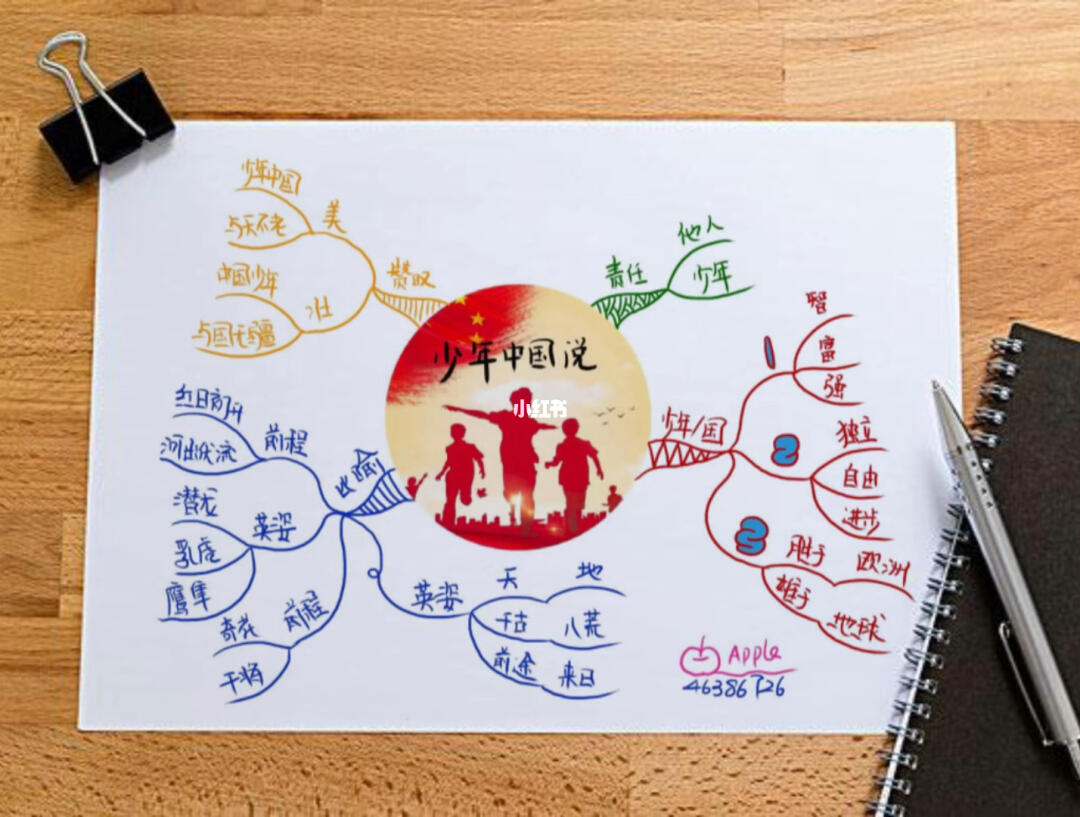 少年中国说
小红书
责任
他人
少年
少年/国
1
智
富
强
2
独立
自由
进步
3
胜于
欧洲
雄于
地球
比喻
前程
红日初升
河出伏流
英姿
潜龙
乳虎
鹰隼
前程
奇花
干将
英姿
天
地
千古
八荒
前途
来日
赞叹
美
少年中国
与天不老
壮
中国少年
与国无疆
Apple
46386726